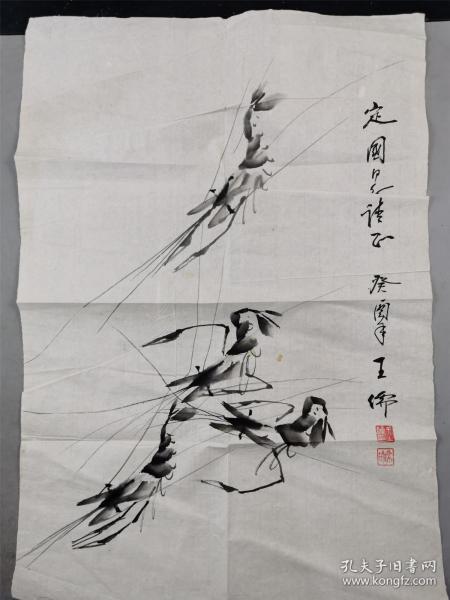 定國兄請正 癸酉年 王儒
孔夫子旧书网
www.kongfz.com